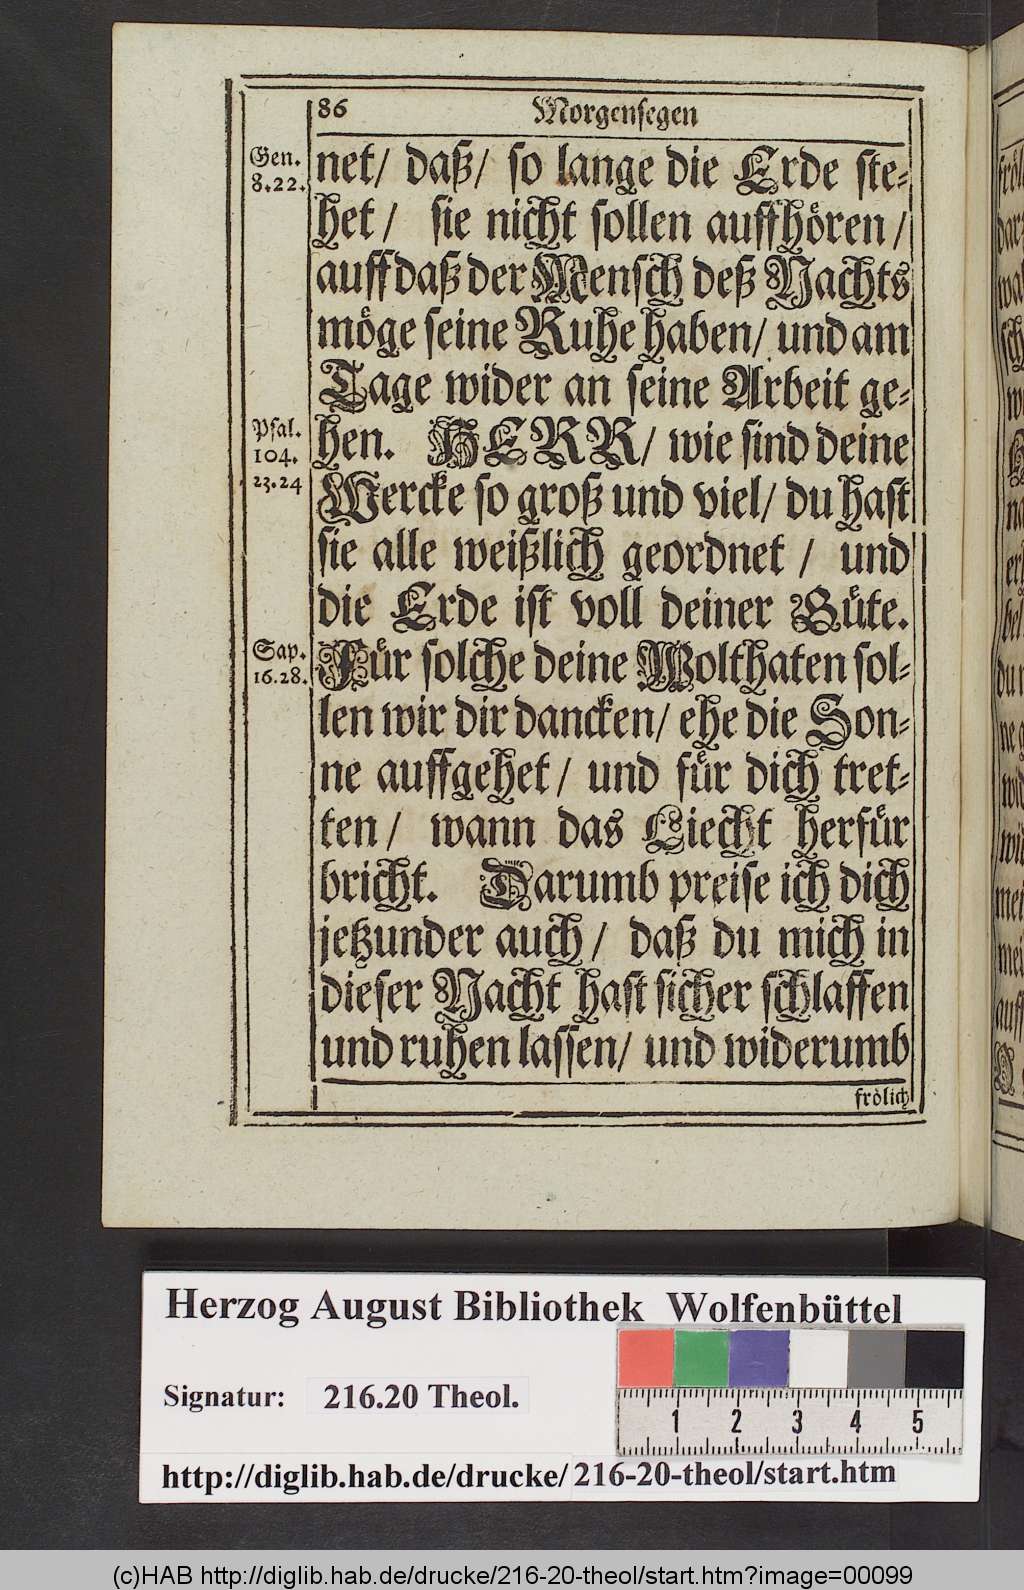 86 Morgensegen
Gen.
8.22.
net/ daß/ so lange die Erde ste-
het/ sie nicht sollen auffhören/
auff daß der Mensch deß Nachts
möge seine Ruhe haben/ und am
Tage wider an seine Arbeit ge-
Psal.
104.
23.24
hen. HERR/ wie sind deine
Wercke so groß und viel/ du hast
sie alle weißlich geordnet/ und
die Erde ist voll deiner Güte.
Sap.
16.28.
Für solche deine Wolthaten sol-
len wir dir dancken/ ehe die Son-
ne auffgehet/ und für dich tret-
ten/ wann das Liecht herfür
bricht. Darumb preise ich dich
jetzunder auch/ daß du mich in
dieser Nacht hast sicher schlaffen
und ruhen lassen/ und widerumb
frölich
Herzog August Bibliothek Wolfenbüttel
Signatur: 216.20 Theol.
1 2 3 4 5
http://diglib.hab.de/drucke/216-20-theol/start.htm
(c)HAB http://diglib.hab.de/drucke/216-20-theol/start.htm?image=00099